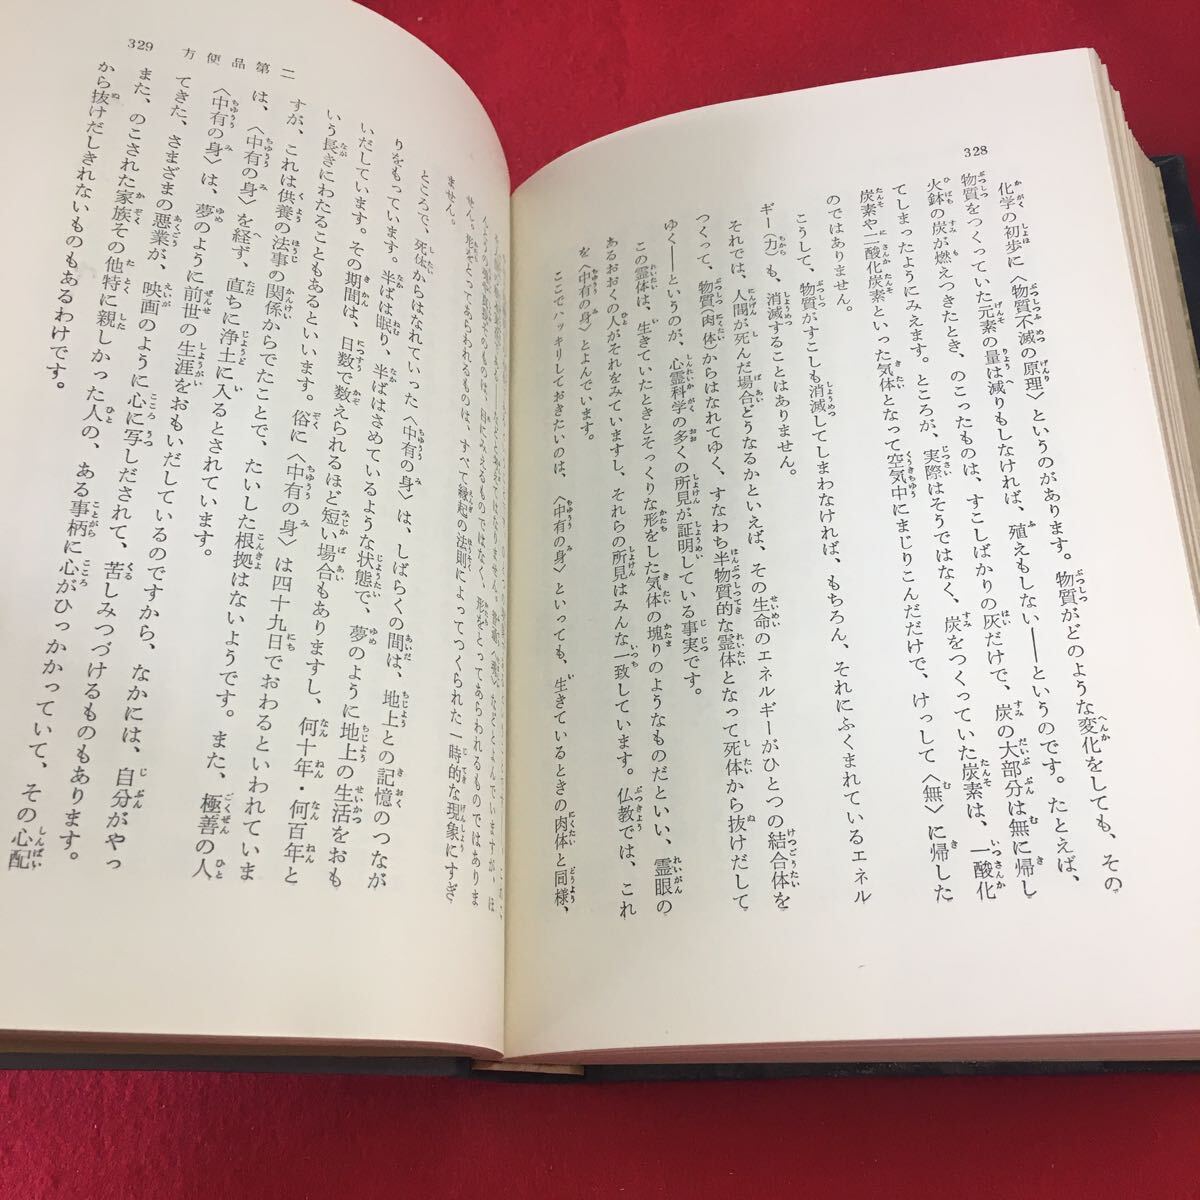 328
化学の初歩に〈物質不滅の原理〉というのがあります。物質がどのような変化をしても、その
物質をつくっていた元素の量は減りもしなければ、殖えもしない――というのです。たとえば、
火鉢の炭が燃えつきたとき、のこったものは、すこしばかりの灰だけで、炭の大部分は無に帰し
てしまったようにみえます。ところが、実際はそうではなく、炭をつくっていた炭素は、一酸化
炭素や二酸化炭素といった気体となって空気中にまじりこんだだけで、けっして〈無〉に帰した
のではありません。
こうして、物質がすこしも消滅してしまわなければ、もちろん、それにふくまれているエネル
ギー（力）も、消滅することはありません。
それでは、人間が死んだ場合どうなるかといえば、その生命のエネルギーがひとつの結合体を
つくって、物質（肉体）からはなれてゆく、すなわち半物質的な霊体となって死体から抜けだして
ゆく――というのが、心霊科学の多くの所見が証明している事実です。
この霊体は、生きていたときとそっくりな形をした気体の塊りのようなものだといい、霊眼の
あるおおくの人がそれをみていますし、それらの所見はみんな一致しています。仏教では、これ
を〈中有の身〉とよんでいます。
ここでハッキリしておきたいのは、〈中有の身〉といっても、生きているときの肉体と同様、
329 方便品第二
せん。形をとってあらわれるものは、すべて縁起の法則によってつくられた一時的な現象にすぎ
ません。
ところで、死体からはなれていった〈中有の身〉は、しばらくの間は、地上との記憶のつなが
りをもっています。半ばは眠り、半ばはさめているような状態で、夢のように地上の生活をおも
いだしています。その期間は、日数で数えられるほど短い場合もありますし、何十年・何百年と
いう長きにわたることもあるといいます。俗に〈中有の身〉は四十九日でおわるといわれていま
すが、これは供養の法事の関係からでたことで、たいした根拠はないようです。また、極善の人
は、〈中有の身〉を経ず、直ちに浄土に入るとされています。
〈中有の身〉は、夢のように前世の生涯をおもいだしているのですから、なかには、自分がやっ
てきた、さまざまの悪業が、映画のように心に写しだされて、苦しみつづけるものもあります。
また、のこされた家族その他特に親しかった人の、ある事柄に心がひっかかっていて、その心配
から抜けだしきれないものもあるわけです。